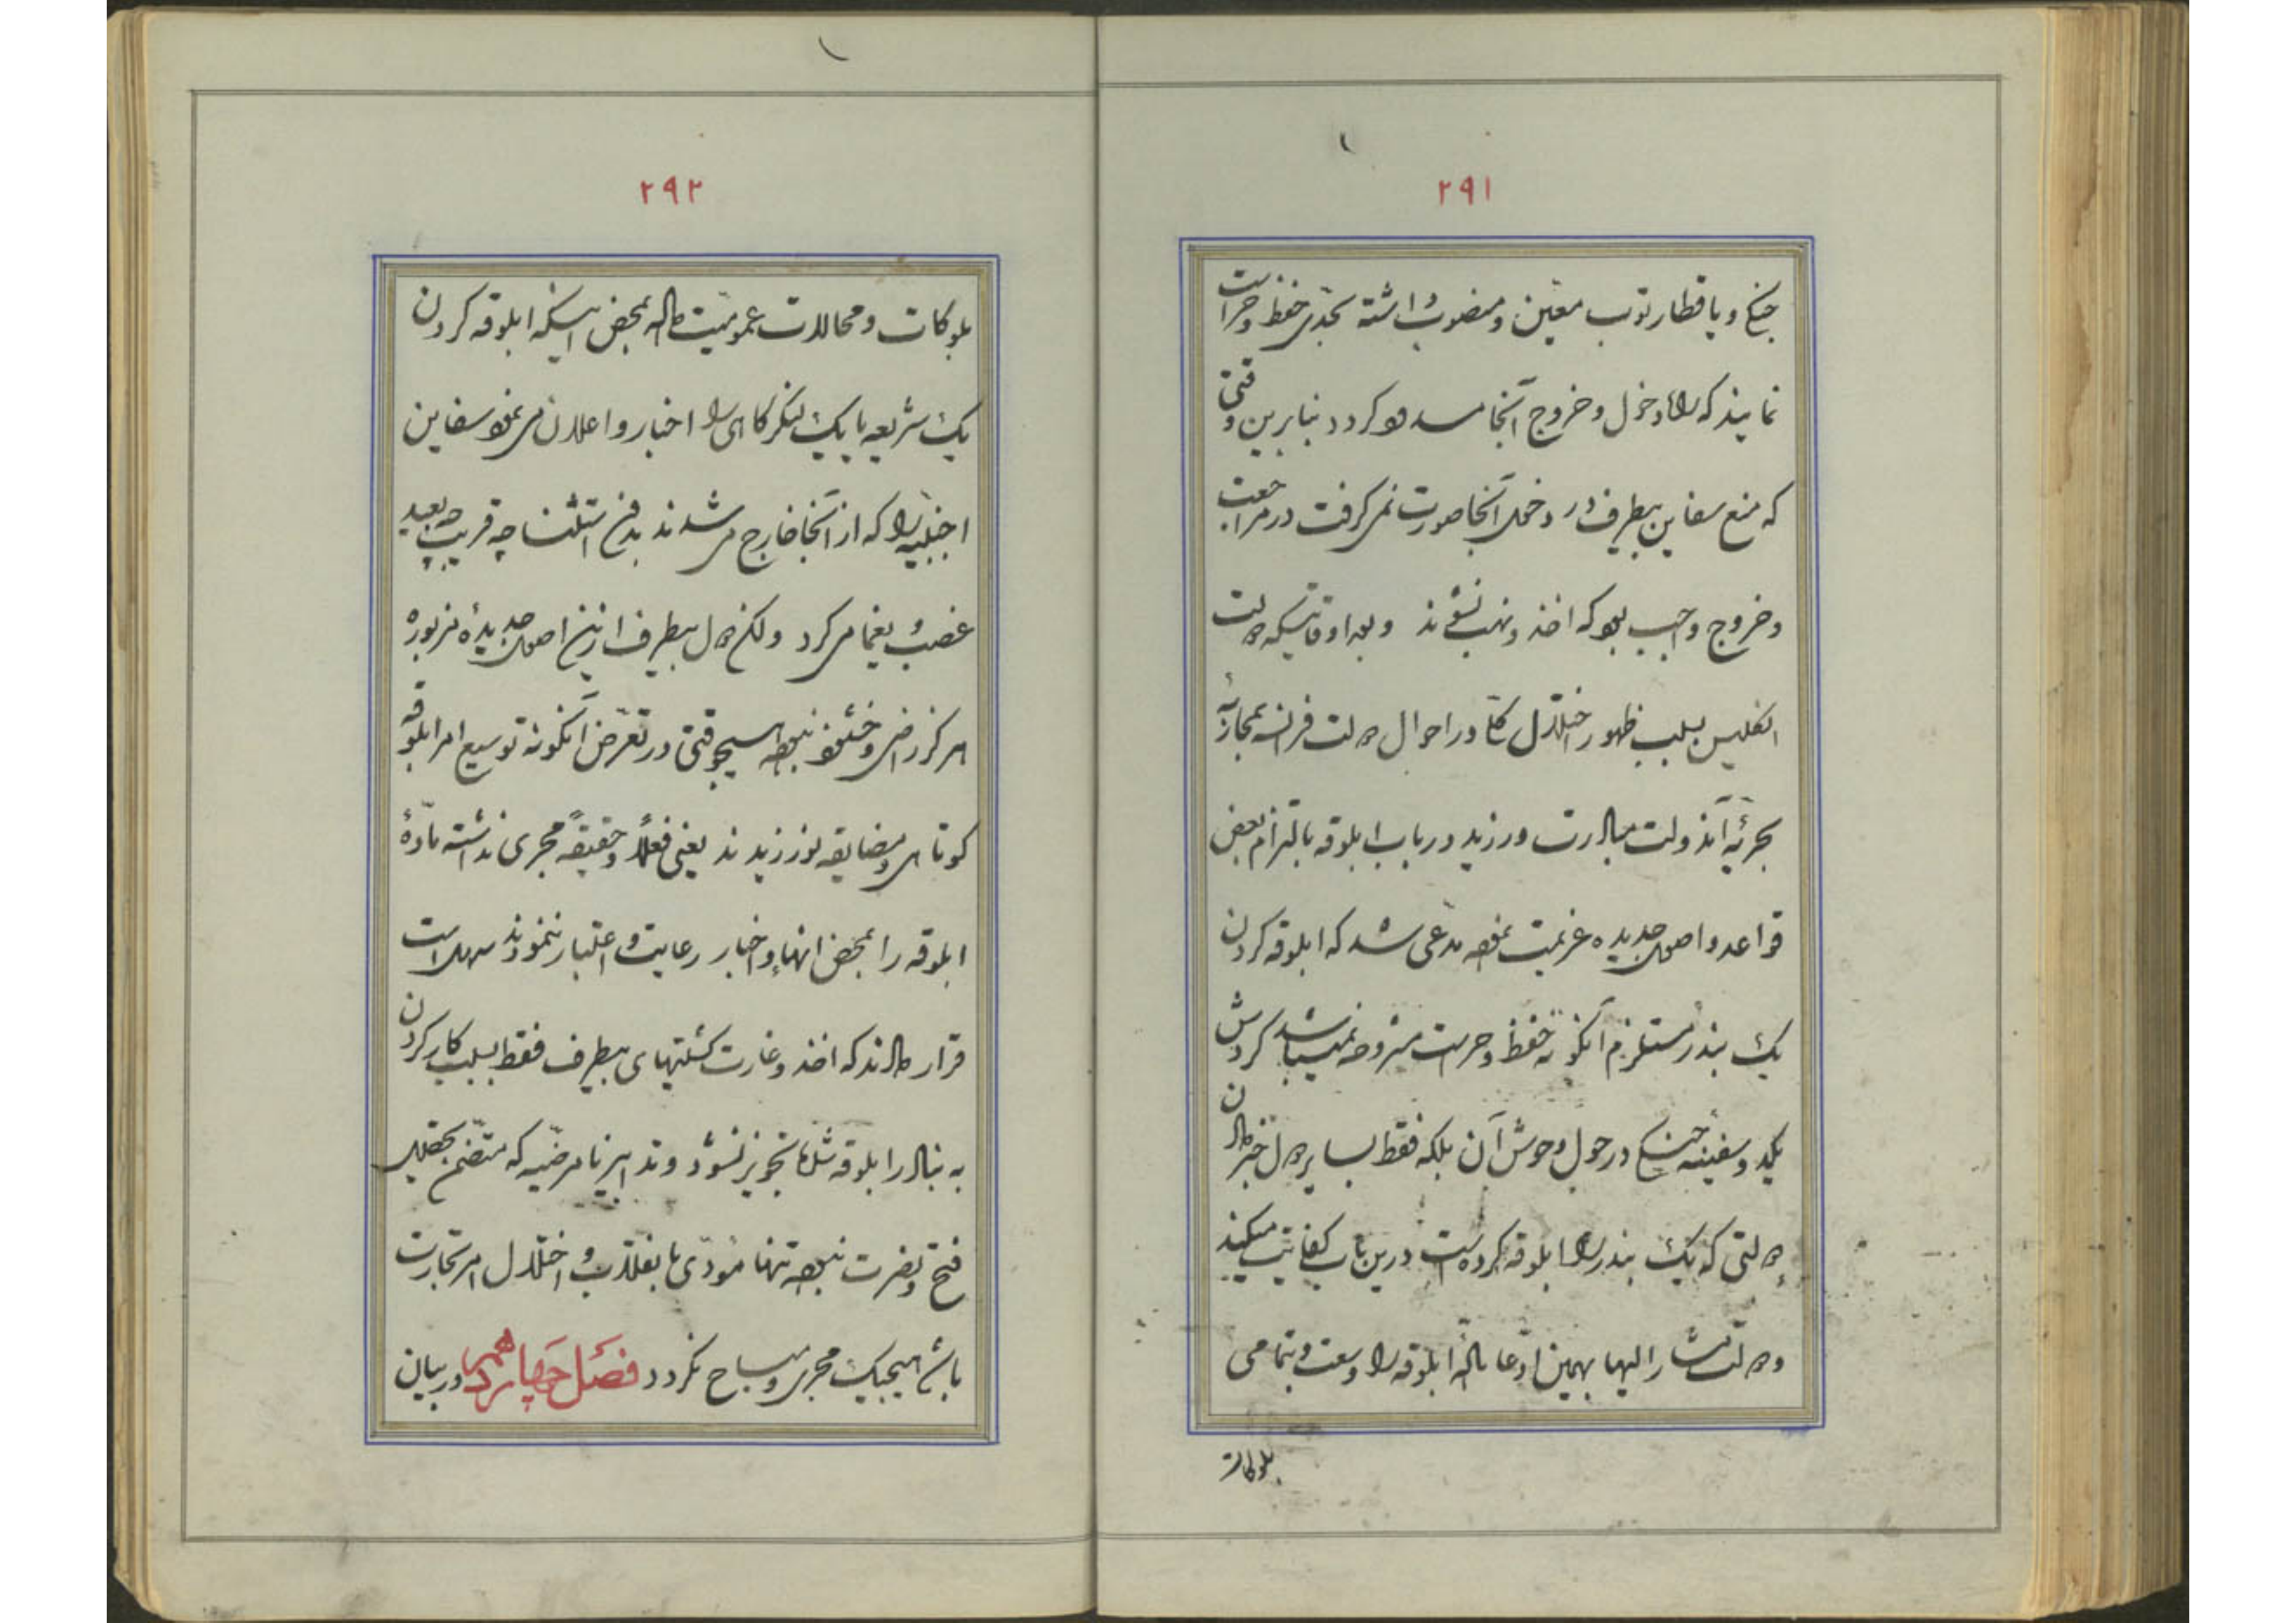 ۲۹۱
جنکی و یا قطار توب معیّن و منصوب داشته بجدّی حفظ و حراست
نمایند که راه دخول و خروج آنجا مسدود کردد بنابرین وقتی
که منع سفاین بیطرف در دخول آنجا صورت نمی کرفت در مراجعت
و خروج واجب بود که اخذ و نهب نشوند و بعد اوقاتیکه دولت
انکلیس بسبب ظهور اختلال کلّی در احوال دولت فرانسه بمجازیهٔ
بحریّهٔ آندولت مبادرت ورزید در باب ابلوقه بالتزام بعض
قواعد و اصول جدیده عزیمت نموده مدّعی شد که ابلوقه کردن
یک بندر مستلزم آنکونه حفظ و حراست مشروحه نمیباشد کردش
یکدو سفینهٔ جنکی در حول و حوش آن بلکه فقط بسایر دول خبر دادن
دولتی که یک بندر را ابلوقه کرده است درین باب کفایت میکند
و دولت مشار الیها بهمین ادّعا مادّهٔ ابلوقه را وسعت و بتمامی
بلوکات
۲۹۲
بلوکات و محالات عمومیّت داده بمحض اینکه ابلوقه کردن
یک شریعه یا یک لنکرکاهی را اخبار و اعلان می نمود سفاین
اجنبیّه را که از آنجا خارج می شدند بدون استثنا چه قریب چه بعید
غصب و یغما می کرد ولکن دول بیطرف ازین اصول جدیدهٔ مزبوره
هرکز راضی و خشنود نبوده هیچوقتی در تعرّض آنکونه توسیع امر ابلوقه
کوتاهی و مضایقه نورزیدند یعنی فعلاً و حقیقةً مجری نداشته مادّهٔ
ابلوقه را بمحض انهاء و اخبار رعایت و اعتبار ننمودند
قرار دادند که اخذ و غارت کشتیهای بیطرف فقط بسبب کار کردن
به بنادر ابلوقه شده تجویز نشود و تدابیر نامرضیّه که متضمّن تحصیل
فتح و نصرت نبوده تنها مؤدّی بانقلاب و اختلال امر تجارت
باشد هیچیک مجری و مباح نکردد فصل چهاردهم در بیان